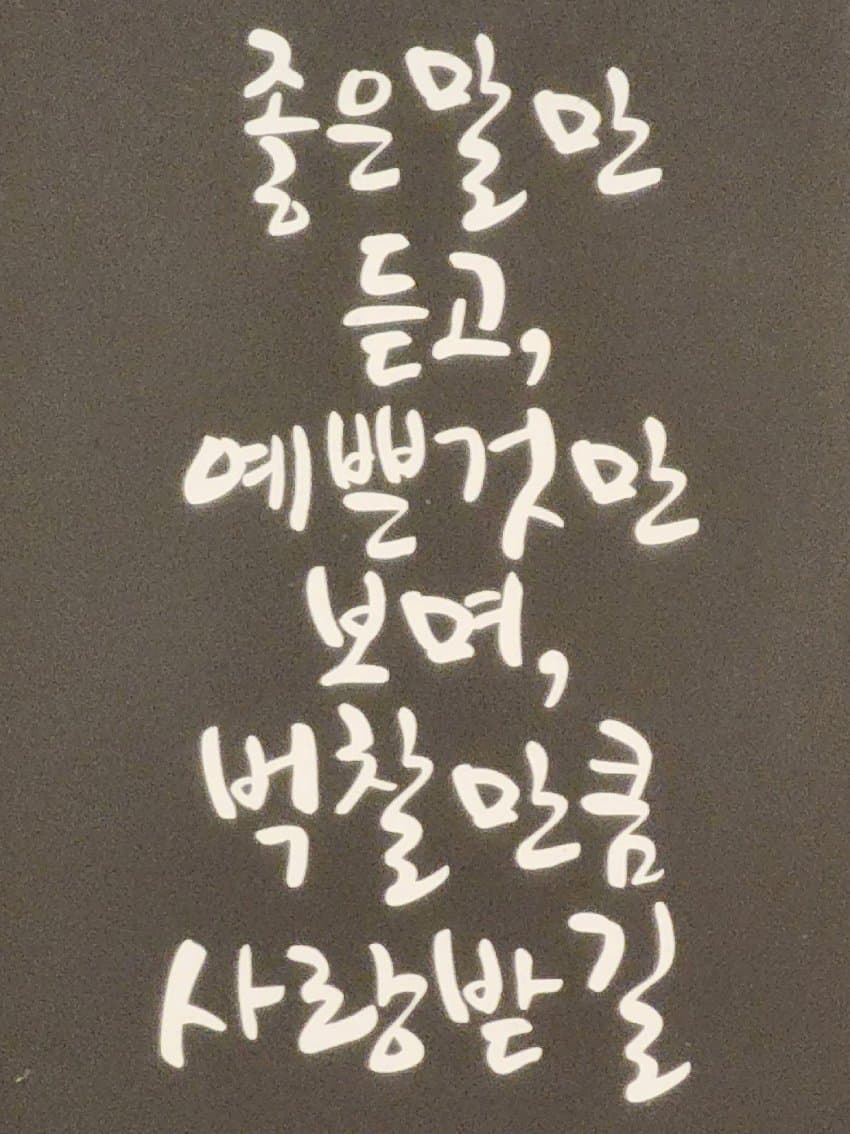 좋은말만
듣고,
예쁜것만
보며,
벅찰만큼
사랑받길